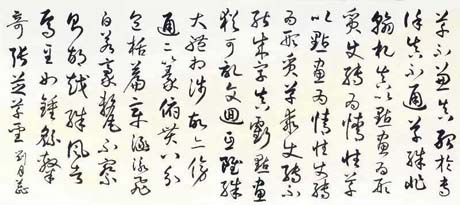 草不兼真殆於專
謹真不通草殊非
翰札真以點畫為形
質使轉為情性草
以點畫為情性使轉
為形質草乖使轉不
能成字真虧點畫
猶可記文迴互雖殊
大體相涉故亦傍
通二篆俯貫八分
包括篇章涵泳飛
白若毫釐不察
則胡越殊風者
焉至如鍾繇隸
奇張芝草聖 劉月